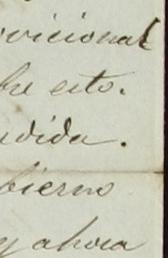 ovicional
bre esto.
ndida.
bierno
y ahora